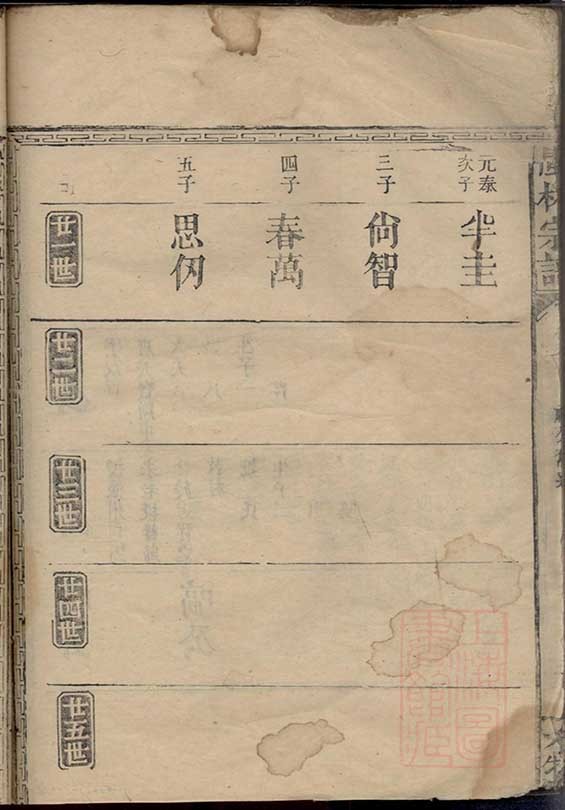 元泰
次子
三子
尙智
四子
春萬
五子
思仞
廿一世
廿二世
廿三世
廿四世
廿五世
宗譜